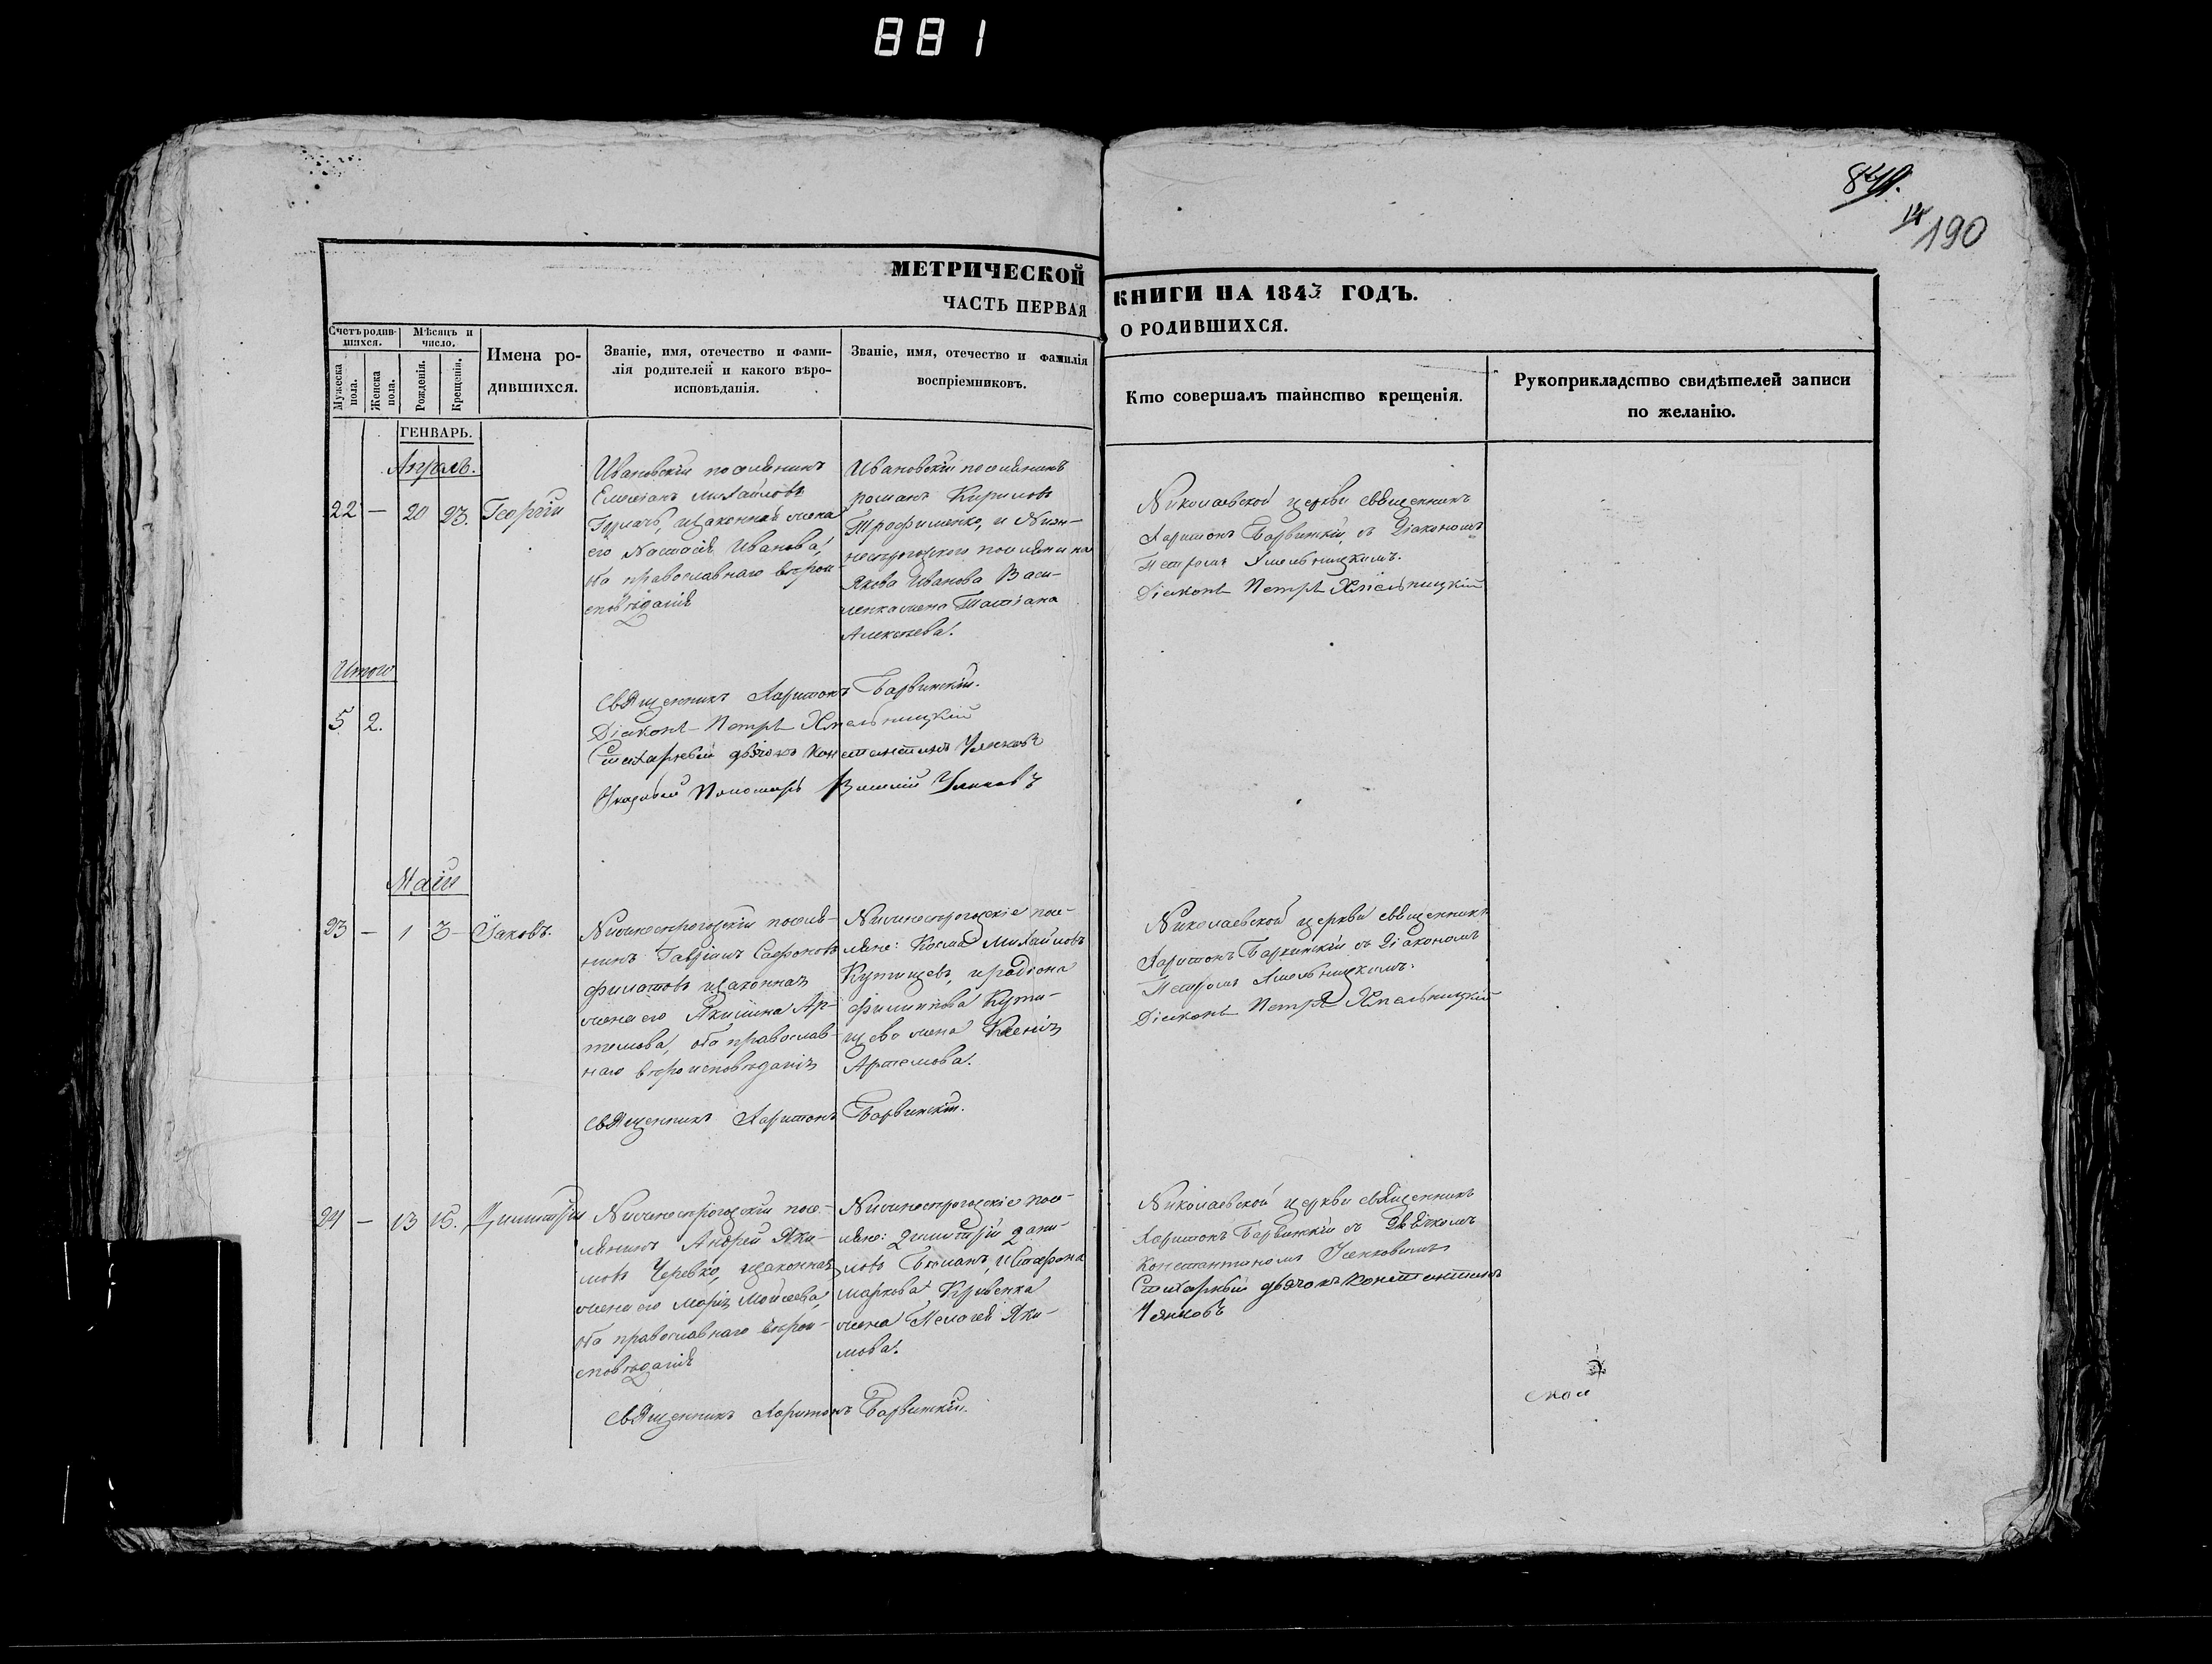 881
190
МЕТРИЧЕСКОЙ
КНИГИ НА 1843 ГОДЪ.
ЧАСТЬ ПЕРВАЯ
О РОДИВШИХСЯ.
Счетъ родив-
шихся.
Мѣсяцъ и
число.
Мужеска
пола.
Женска
пола.
Рожденія.
Крещенія.
Имена ро-
дившихся.
Званіе, имя, отечество и фами-
лія родителей и какого вѣро-
исповѣданія.
Званіе, имя, отечество и фамилія
воспріемниковъ.
Кто совершалъ таинство крещенія.
Рукоприкладство свидѣтелей записи
по желанію.
ГЕНВАРЬ.
Апрель.
22 — 20 23. Георгій
Ивановскій поселянинъ
Емелианъ Михайловъ
изаконная жена
его Настасія Иванова,
оба православнаго вѣрои-
споведанія
Ивановскій поселянинъ
романъ Кириловъ
Трофименко, и Ниж-
несерогозского поселянина
Якова Иванова Васи-
ленка жена Татіана
Алексѣева.
Николаевской церкви священникъ
Харитонъ Барвинскій съ Діакономъ
Петромъ Хмельницкимъ.
Діаконъ Петръ Хмельницкій
Итого
5 2.
Священникъ Харитонъ Барвинскій.
Діаконъ Петръ Хмельницкій
Стихарный дьячокъ Константинъ
Указный Пономарь
Маій
23 — 1 3 Іаковъ.
Нижнесерогозскій поселя-
нинъ Гавріилъ Сафоновъ
филатовъ изаконная
жена его Акилина Ар-
темова, оба православ-
наго вероисповеданія
Нижнесерогозскіе посе-
ляне: Косма Михайловъ
Кутищевъ, и родіона
филипова Кути-
щева жена Ксенія
Артемова.
Николаевской церкви священникъ
Харитонъ Барвинскій съ Діакономъ
Петромъ Хмельницкимъ.
Діаконъ Петръ Хмельницкій
Священникъ Харитонъ Барвинскій.
24 — 13 15. Димитрій
Нижнесерогозскій посе-
лянинъ Андрей Яки-
мовъ Черевко, изаконная
жена его Марія Мойсеева,
оба православнаго вѣрои-
споведанія
Нижнесерогозскіе посе-
ляне: Димитрій Дани-
ловъ и Стефана
маркова Кривенка
жена Пелагея Яки-
мова.
Николаевской церкви священникъ
Харитонъ Барвинскій съ Дьячкомъ
Константиномъ
Стихарный дьячокъ Константинъ
Священникъ Харитонъ Барвинскій.